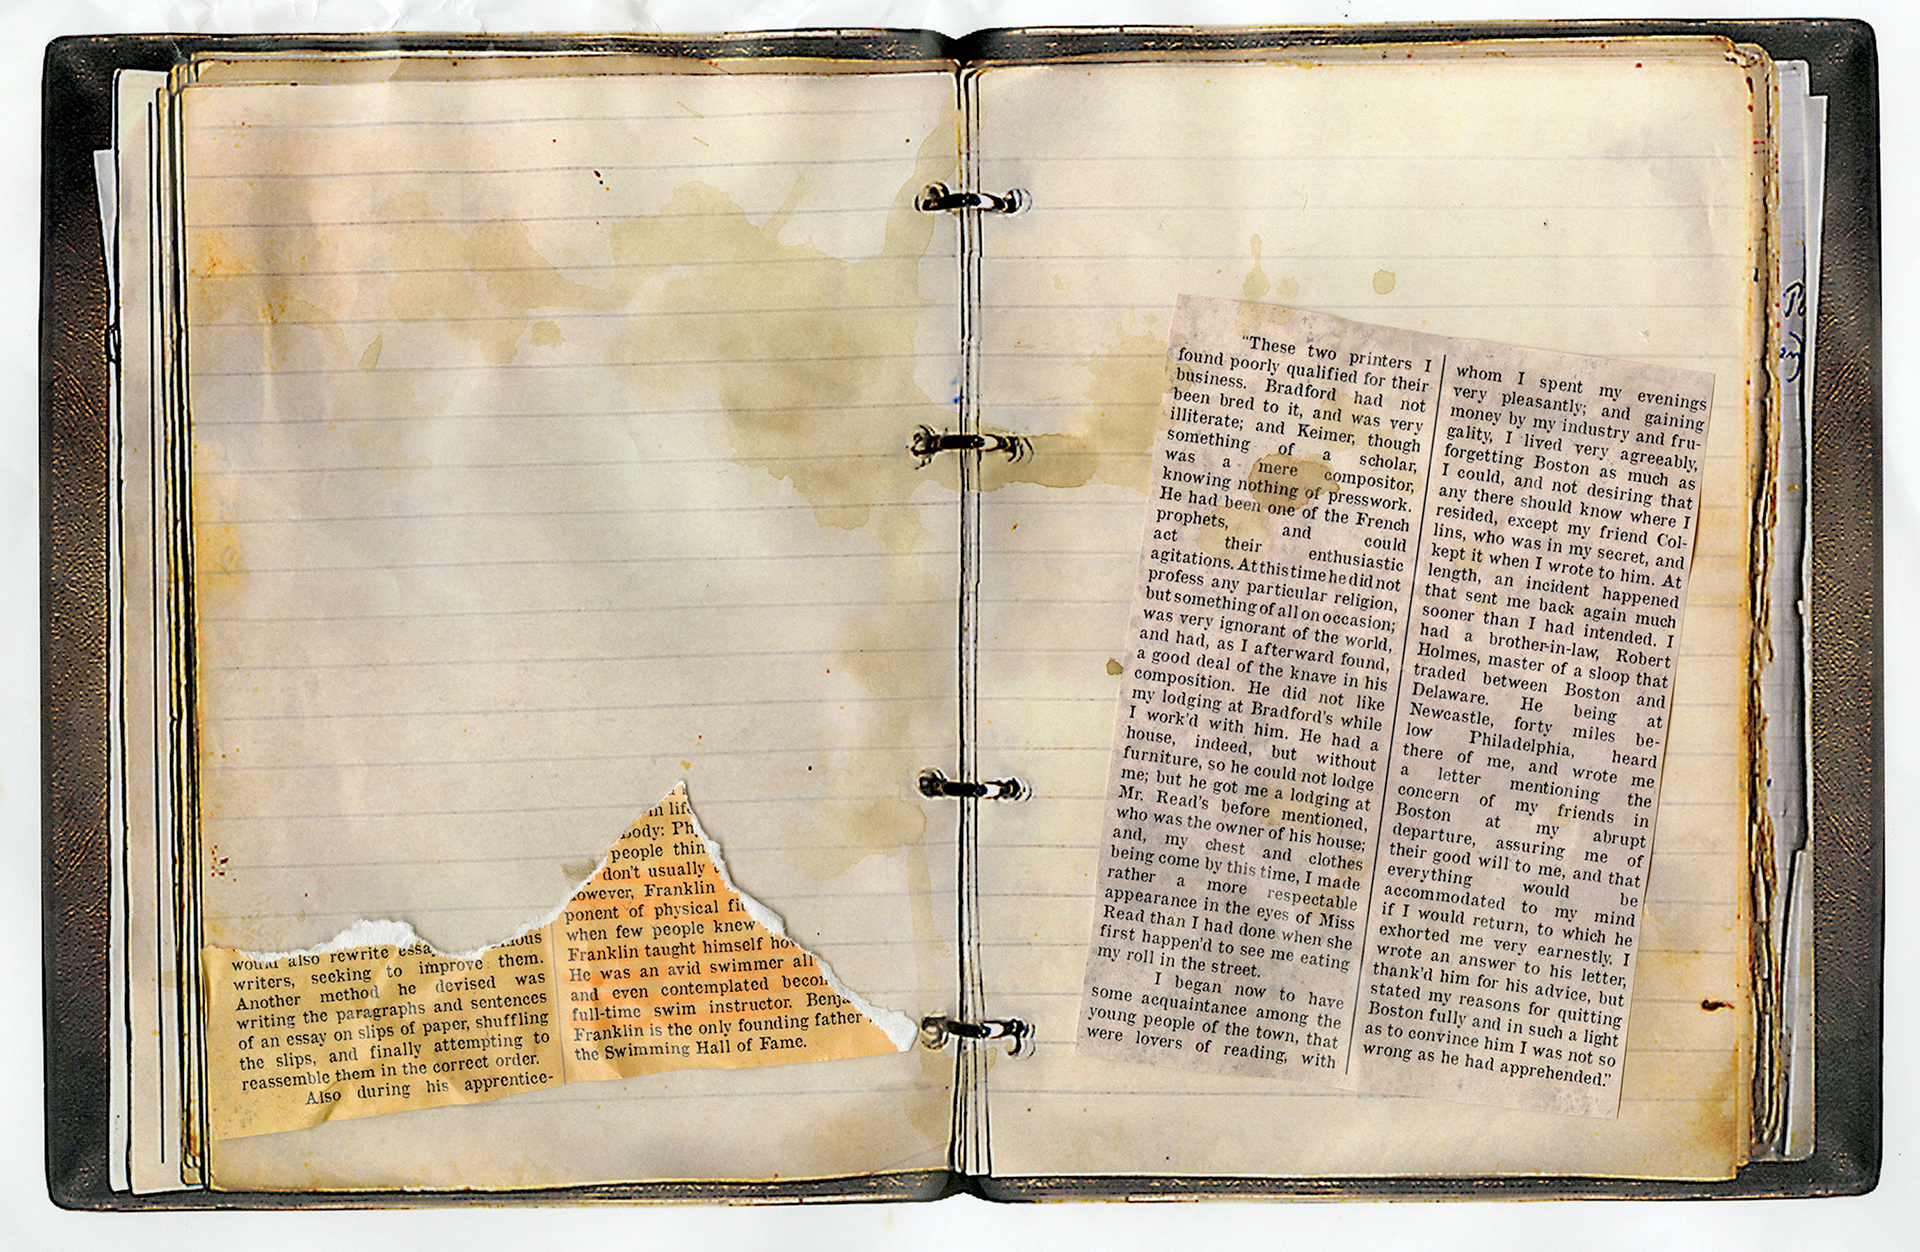 would also rewrite
writers, seeking to improve them.
Another method he devised was
writing the paragraphs and sentences
of an essay on slips of paper, shuffling
the slips, and finally attempting to
reassemble them in the correct order.
Also during his apprentice-
people thin
don't usually
However, Franklin
ponent of physical
when few people knew
Franklin taught himself
He was an avid swimmer all
and even contemplated
full-time swim instructor. Benja
Franklin is the only founding father
the Swimming Hall of Fame.
"These two printers I
found poorly qualified for their
business. Bradford had not
been bred to it, and was very
illiterate; and Keimer, though
something of a scholar,
was a mere compositor,
knowing nothing of presswork.
He had been one of the French
prophets, and could
act their enthusiastic
agitations. At this time he did not
profess any particular religion,
but something of all on occasion;
was very ignorant of the world,
and had, as I afterward found,
a good deal of the knave in his
composition. He did not like
my lodging at Bradford's while
I work'd with him. He had a
house, indeed, but without
furniture, so he could not lodge
me; but he got me a lodging at
Mr. Read's before mentioned,
who was the owner of his house;
and, my chest and clothes
being come by this time, I made
rather a more respectable
appearance in the eyes of Miss
Read than I had done when she
first happen'd to see me eating
my roll in the street.
I began now to have
some acquaintance among the
young people of the town, that
were lovers of reading, with
whom I spent my evenings
very pleasantly; and gaining
money by my industry and fru-
gality, I lived very agreeably,
forgetting Boston as much as
I could, and not desiring that
any there should know where I
resided, except my friend Col-
lins, who was in my secret, and
kept it when I wrote to him. At
length, an incident happened
that sent me back again much
sooner than I had intended. I
had a brother-in-law, Robert
Holmes, master of a sloop that
traded between Boston and
Delaware. He being at
Newcastle, forty miles be-
low Philadelphia, heard
there of me, and wrote me
a letter mentioning the
concern of my friends in
Boston at my abrupt
departure, assuring me of
their good will to me, and that
everything would be
accommodated to my mind
if I would return, to which he
exhorted me very earnestly. I
wrote an answer to his letter,
thank'd him for his advice, but
stated my reasons for quitting
Boston fully and in such a light
as to convince him I was not so
wrong as he had apprehended."